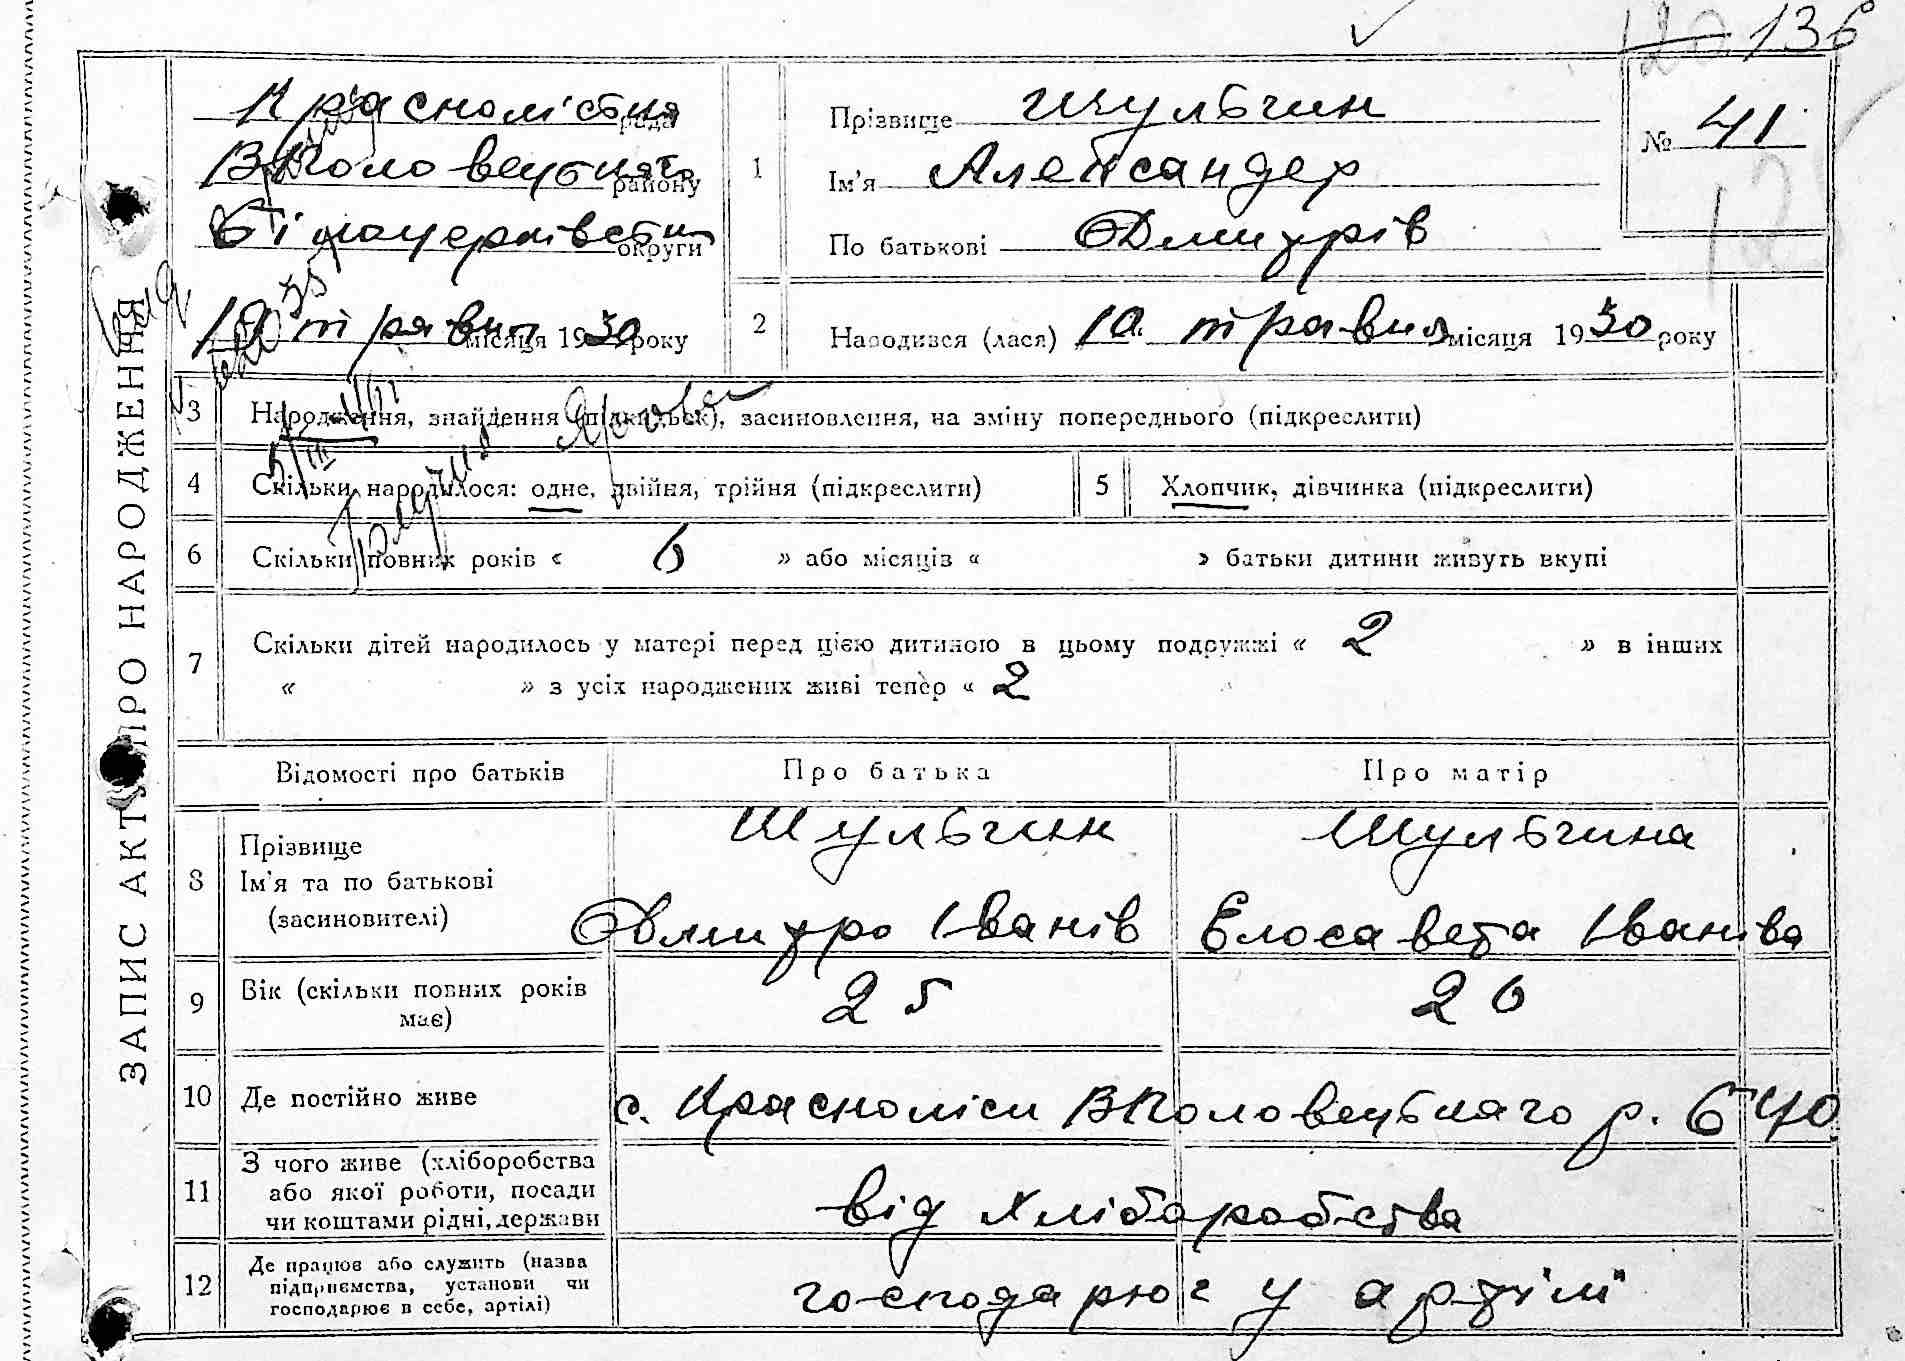 120 136
ЗАПИС АКТУ ПРО НАРОДЖЕННЯ
Краснолiська рада
ВПоловецького району
Білоцерківськ округи
10 травня місяця 1930 року
1
Прізвище Шульгин
Ім'я Александер
По батькові Дмитрів
№ 41
2
Народився (лася) 10. травня місяця 1930 року
3 Народження, знайдення (підкидьск), засиновлення, на зміну попереднього (підкреслити)
4 Скільки народилося: одне, двійня, трійня (підкреслити)
5 Хлопчик, дівчинка (підкреслити)
6 Скільки повних років « 6 » або місяців « » батьки дитини живуть вкупі
7 Скільки дітей народилось у матері перед цією дитиною в цьому подружжі « 2 » в інших
« » з усіх народжених живі тепер « 2
Відомості про батьків Про батька Про матір
8 Прізвище Шульгин Шульгина
Ім'я та по батькові
(засиновителі) Дмитро Іванів Елосавета Іванiва
9 Вік (скільки повних років
має) 25 26
10 Де постійно живе с. Красноліси ВПоловецького р. БЦО
11 З чого живе (хліборобства
або якої роботи, посади
чи коштами рідні, держави від хліборобства
12 Де працює або служить (назва
підприємства, установи чи
господарює в себе, артілі) господарює у артілі